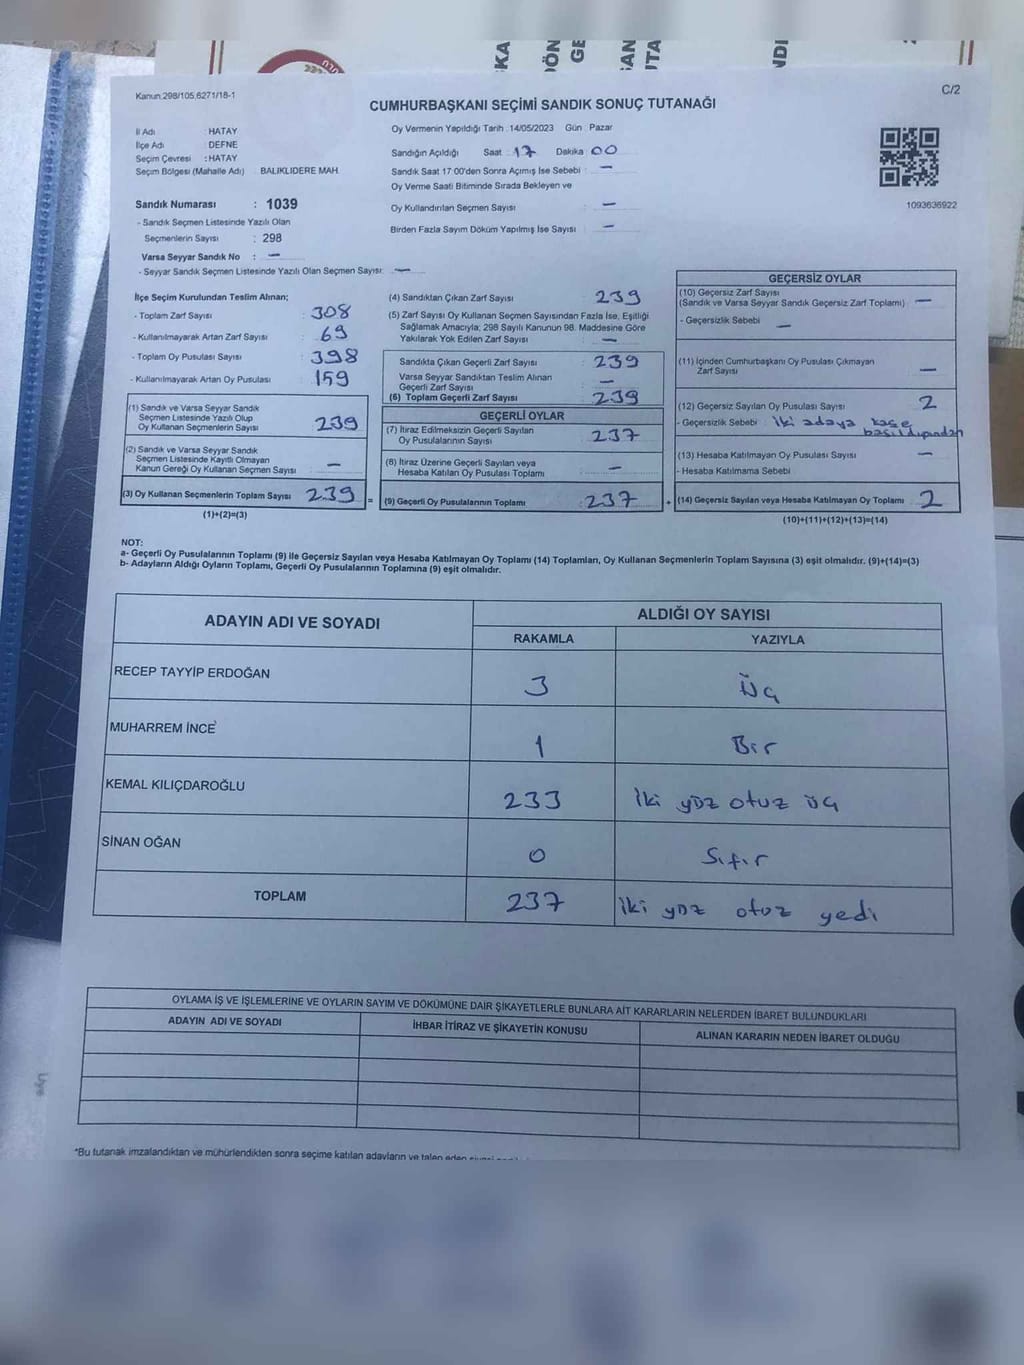 KA
DÖN
GE
AN
ITA
NDI
Kanun:298/105,6271/18-1
C/2
CUMHURBAŞKANI SEÇİMİ SANDIK SONUÇ TUTANAĞI
İl Adı : HATAY
İlçe Adı : DEFNE
Seçim Çevresi : HATAY
Seçim Bölgesi (Mahalle Adı) BALIKLIDERE MAH.
Sandık Numarası : 1039
- Sandık Seçmen Listesinde Yazılı Olan
Seçmenlerin Sayısı : 298
Varsa Seyyar Sandık No : —
- Seyyar Sandık Seçmen Listesinde Yazılı Olan Seçmen Sayısı: —
Oy Vermenin Yapıldığı Tarih : 14/05/2023 Gün : Pazar
Sandığın Açıldığı Saat : 17 Dakika : 00
Sandık Saat 17 00'den Sonra Açımış İse Sebebi : —
Oy Verme Saati Bitiminde Sırada Bekleyen ve
Oy Kullandırılan Seçmen Sayısı : —
Birden Fazla Sayım Döküm Yapılmış İse Sayısı : —
1093636922
İlçe Seçim Kurulundan Teslim Alınan;
- Toplam Zarf Sayısı : 308
- Kullanılmayarak Artan Zarf Sayısı : 69
- Toplam Oy Pusulası Sayısı : 398
- Kullanılmayarak Artan Oy Pusulası : 159
(1) Sandık ve Varsa Seyyar Sandık
Seçmen Listesinde Yazılı Olup
Oy Kullanan Seçmenlerin Sayısı : 239
(2) Sandık ve Varsa Seyyar Sandık
Seçmen Listesinde Kayıtlı Olmayan
Kanun Gereği Oy Kullanan Seçmen Sayısı : —
(3) Oy Kullanan Seçmenlerin Toplam Sayısı : 239
(1)+(2)=(3)
=
(4) Sandıktan Çıkan Zarf Sayısı : 239
(5) Zarf Sayısı Oy Kullanan Seçmen Sayısından Fazla İse, Eşitliği
Sağlamak Amacıyla; 298 Sayılı Kanunun 98. Maddesine Göre
Yakılarak Yok Edilen Zarf Sayısı : —
Sandıkta Çıkan Geçerli Zarf Sayısı : 239
Varsa Seyyar Sandıktan Teslim Alınan
Geçerli Zarf Sayısı : —
(6) Toplam Geçerli Zarf Sayısı : 239
GEÇERLİ OYLAR
(7) İtiraz Edilmeksizin Geçerli Sayılan
Oy Pusulalarının Sayısı : 237
(8) İtiraz Üzerine Geçerli Sayılan veya
Hesaba Katılan Oy Pusulası Toplamı : —
(9) Geçerli Oy Pusulalarının Toplamı : 237
+
GEÇERSİZ OYLAR
(10) Geçersiz Zarf Sayısı
(Sandık ve Varsa Seyyar Sandık Geçersiz Zarf Toplamı) : —
- Geçersizlik Sebebi : —
(11) İçinden Cumhurbaşkanı Oy Pusulası Çıkmayan
Zarf Sayısı : —
(12) Geçersiz Sayılan Oy Pusulası Sayısı : 2
- Geçersizlik Sebebi : iki adaya kaşe
basıldığından
(13) Hesaba Katılmayan Oy Pusulası Sayısı : —
- Hesaba Katılmama Sebebi
(14) Geçersiz Sayılan veya Hesaba Katılmayan Oy Toplamı : 2
(10)+(11)+(12)+(13)=(14)
NOT:
a- Geçerli Oy Pusulalarının Toplamı (9) ile Geçersiz Sayılan veya Hesaba Katılmayan Oy Toplamı (14) Toplamları, Oy Kullanan Seçmenlerin Toplam Sayısına (3) eşit olmalıdır. (9)+(14)=(3)
b- Adayların Aldığı Oyların Toplamı, Geçerli Oy Pusulalarının Toplamına (9) eşit olmalıdır.
ADAYIN ADI VE SOYADI ALDIĞI OY SAYISI
RAKAMLA YAZIYLA
RECEP TAYYİP ERDOĞAN 3 Üç
MUHARREM İNCE 1 Bir
KEMAL KILIÇDAROĞLU 233 İki yüz otuz üç
SİNAN OĞAN 0 Sıfır
TOPLAM 237 İki yüz otuz yedi
OYLAMA İŞ VE İŞLEMLERİNE VE OYLARIN SAYIM VE DÖKÜMÜNE DAİR ŞİKAYETLERLE BUNLARA AİT KARARLARIN NELERDEN İBARET BULUNDUKLARI
ADAYIN ADI VE SOYADI İHBAR İTİRAZ VE ŞİKAYETİN KONUSU ALINAN KARARIN NEDEN İBARET OLDUĞU
Üye
*Bu tutanak imzalandıktan ve mühürlendikten sonra seçime katılan adayların ve talep eden